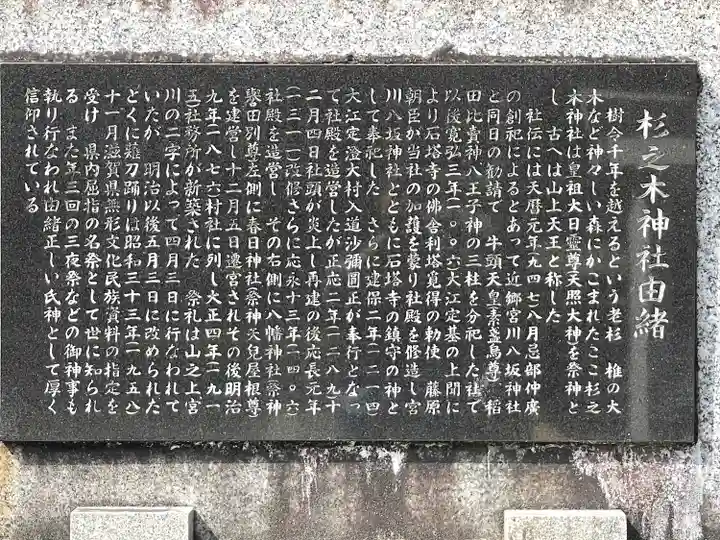 杉之木神社由緒
樹令千年を越えるという老杉 椎の大
木など神々しい森にかこまれたここ杉之
木神社は皇祖大日靈尊(天照大神)を祭神と
し 古へは山上天王と称した
社伝には天暦元年(九四七)八月忌部仲廣
の創祀によるとあって近郷宮川八坂神社
と同日の勧請で 牛頭天皇(素盞烏尊) 稲
田比賣神八王子神の三柱を分祀した社で
以後寛弘三年(一〇〇六)大江定基の上聞に
より石塔寺の佛舎利塔覓得の勅使 藤原
朝臣が当社の加護を蒙り社殿を修造し宮
川八坂神社とともに石塔寺の鎮守の神と
して奉祀した さらに建保二年(一二一四)
大江定澄大村入道沙彌圓正が奉行となっ
て社殿を造営したが正応二年(一二八九)十
二月四日社頭が炎上し再建の後応長元年
(一三一一)改修さらに応永十三年(一四〇六)
社殿を造営し その右側に八幡神社祭神
譽田別尊左側に春日神社祭神天兒屋根尊
を建営し十二月五日遷宮されその後明治
九年(一八七六)村社に列し大正四年(一九一
五)社務所が新築された 祭礼は山之上宮
川の二字によって四月三日に行なわれて
いたが 明治以後五月三日に改められた
とくに薙刀踊りは昭和三十三年(一九五八)
十一月滋賀県無形文化民族資料の指定を
受け 県内屈指の名祭として世に知られ
る また年三回の三夜祭などの御神事も
執り行なわれ由緒正しい氏神として厚く
信仰されている